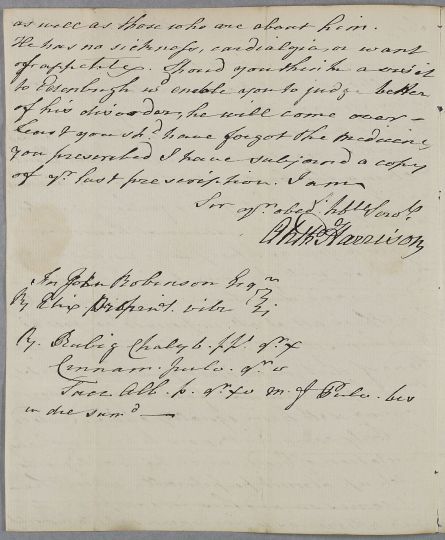 as well as those who are about him.
He has no sickness, cardialgia or want
of appetite. Should you think a visit
to Edenburgh wd. enable you to judge better
of his disorder, he will come over –
Least you shd. have forgot the Medicine
you prescribed I have subjoined a copy
of yr. last prescription. I am
Sir yr. obedt. hble Servt.
Arthr Harrison
For John Robinson Esqr.
℞ Elix
℞. Rubig Chalyb. ppt. gr. x
Cinnam. pulv. gr. v
Sacc. Alb. p. gr. xv m. f Pulv. bis
in die sumd —